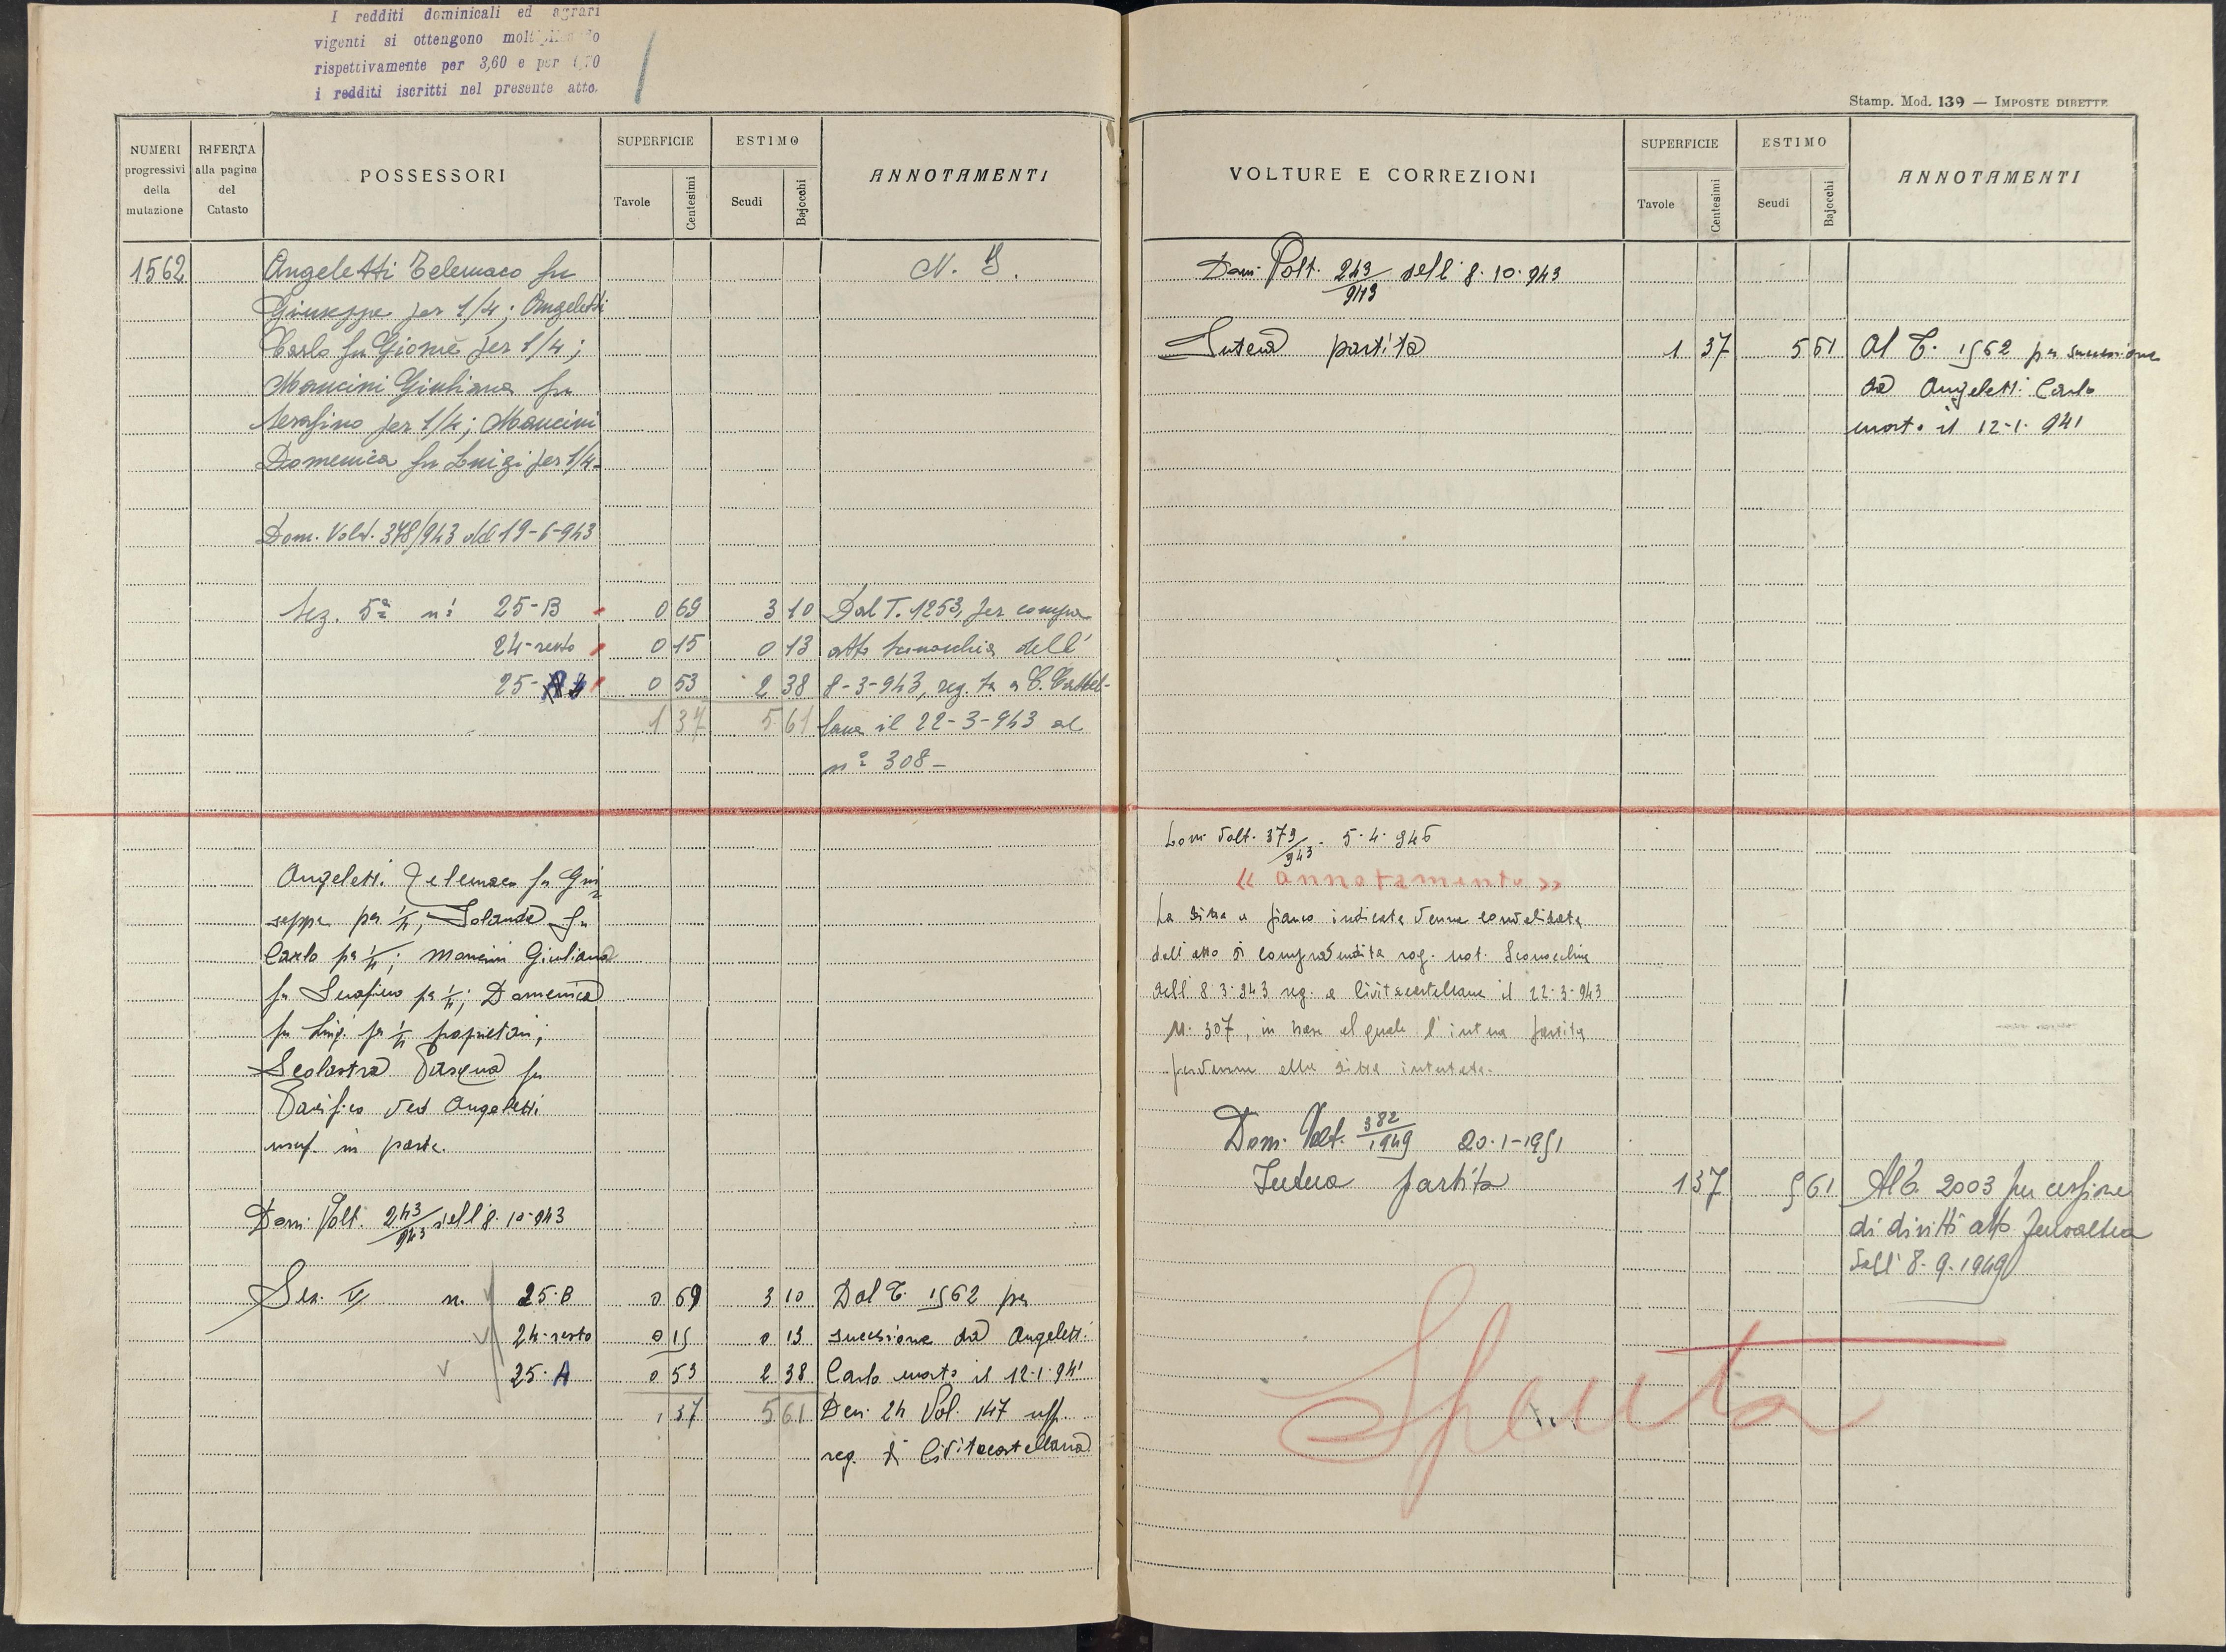 I redditi dominicali ed agrari
vigenti si ottengono moltiplicando
rispettivamente per 3,60 e per
i redditi iscritti nel presente atto.
NUMERI progressivi della mutazione
RIFERTA alla pagina del Catasto
POSSESSORI
SUPERFICIE
Tavole
Centesimi
ESTIMO
Scudi
Bajocchi
ANNOTAMENTI
1562
Angeletti Telemaco fu
N. 8.
Giuseppe per 1/4; Angeletti
Carlo fu Giosuè per 1/4;
Mancini Giuliana fu
Serafino per 1/4; Mancini
Domenica fu Luigi per 1/4-
Dom. Volt. 378/943 del 19-6-943
Sez. 5ª nⁱ 25-B 0 69 3 10 Dal T. 1253, per compra
24-resto 0 15 0 13 atto Sconocchia dell'
25- 0 53 2 38 8-3-943, reg. to a C. Castel-
1 37 5 61 lana il 22-3-943 al
n° 308-
Angeletti Telemaco fu Giu
seppe per 1/4, Iolanda fu
Carlo per 1/4; Mancini Giuliana
fu Serafino per 1/4; Domenica
fu Luigi per 1/4 proprietari;
Scolastra Pasqua fu
Pacifico ved Angeletti
usuf. in parte.
Dom. Volt. 243/943 dell'8.10.943
Sez. V n. 25.B 0 69 3 10 Dal T. 1562 per
24-resto 0 15 0 13 successione da Angeletti
25.A 0 53 2 38 Carlo morto il 12.1.941
1 37 5 61 Den. 24 Vol. 147 uff.
reg. di Civitacastellana
Stamp. Mod. 139 — IMPOSTE DIRETTE
VOLTURE E CORREZIONI
SUPERFICIE
Tavole
Centesimi
ESTIMO
Scudi
Bajocchi
ANNOTAMENTI
Dom. Volt. 243/943 dell'8.10.943
Intera partita 1 37 5 61 Al T. 1562 per successione
da Angeletti Carlo
morto il 12-1-941
Dom Volt. 379/943 - 5.4.946
« annotamento »
La ditta a fianco indicata venne convalidata
dall'atto di compravendita rog. not. Sconocchia
dell'8.3.943 reg. a Civitacastellana il 22-3-943
N. 307, in base al quale l'intera partita
pervenne alla ditta intestata.
Dom. Volt. 382/1949 20-1-1951
Intera partita 1 37 5 61 Al T. 2003 per cessione
di diritti atto
dell'8-9-1949
Spenta